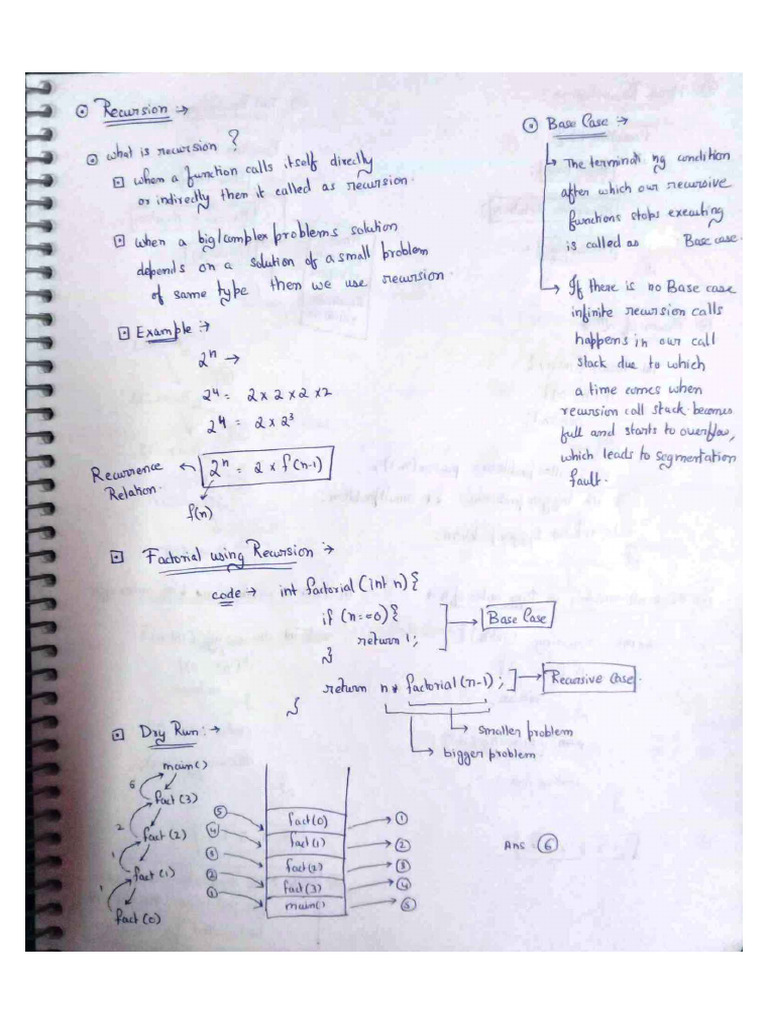 Recursion :→
what is recursion ?
when a function calls itself directly
or indirectly then it called as recursion.
when a big/complex problems solution
depends on a solution of a small problem
of same type then we use recursion.
Example :→
2ⁿ →
2⁴ = 2 x 2 x 2 x 2
2⁴ = 2 x 2³
Recurrence Relation.
2ⁿ = 2 x f(n-1)
f(n)
Base Case :→
The terminating condition
after which our recursive
functions stops executing
is called as Base case.
If there is no Base case
infinite recursion calls
happens in our call
stack due to which
a time comes when
recursion call stack becomes
full and starts to overflow,
which leads to segmentation
fault.
Factorial using Recursion :→
code → int factorial (int n) {
if (n==0) {
return 1;
}
Base Case
return n * factorial (n-1) ;
Recursive Case.
}
smaller problem
bigger problem.
Dry Run :→
main()
6
fact(3)
2
fact(2)
1
fact(1)
1
fact(0)
5 fact(0) 1
4 fact(1) 2
3 fact(2) 3
2 fact(3) 4
1 main() 5
Ans 6